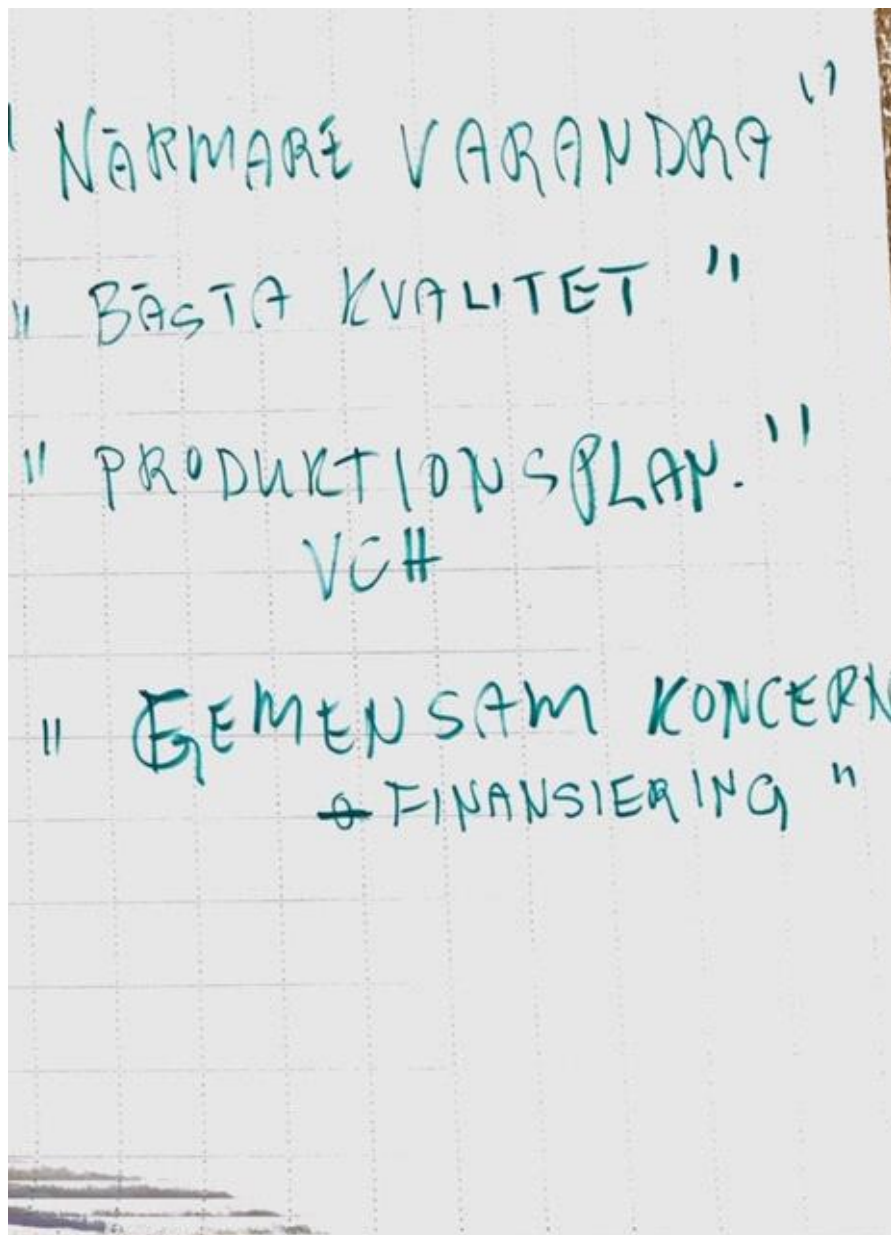 " NÄRMARE VARANDRA "
" BÄSTA KVALITET "
" PRODUKTIONSPLAN. "
VCH
" GEMENSAM KONCERN
FINANSIERING "